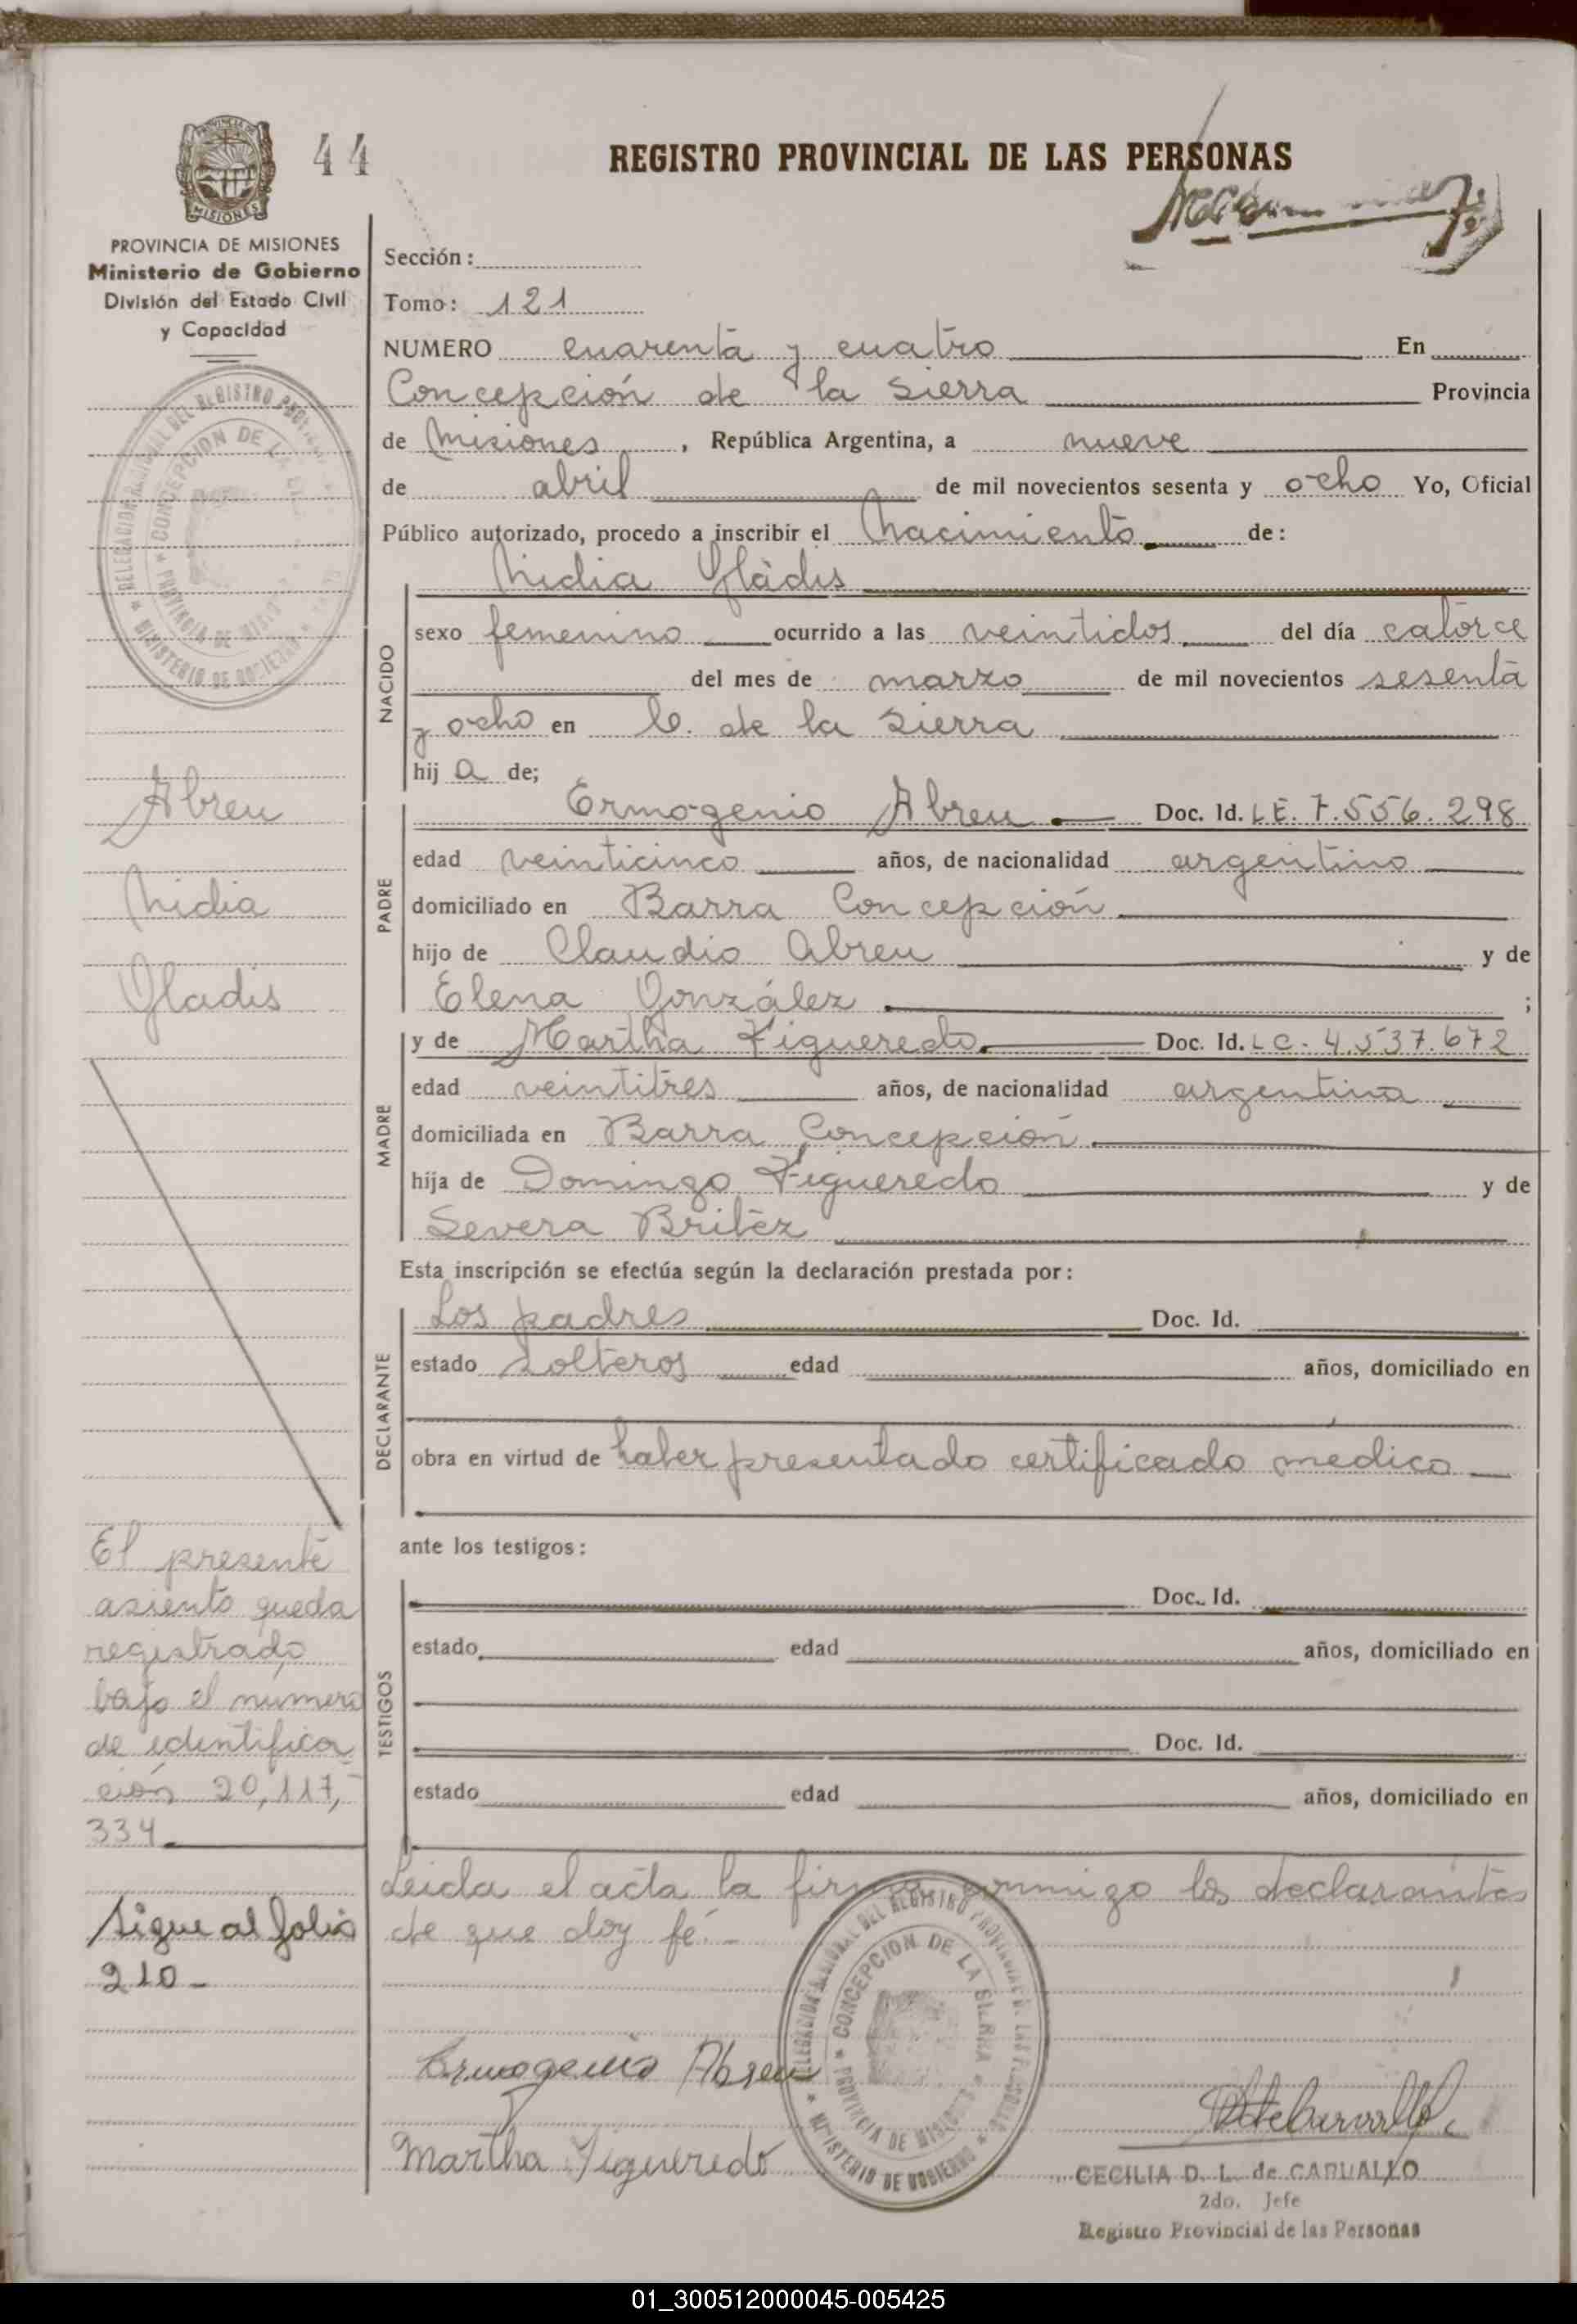 44
REGISTRO PROVINCIAL DE LAS PERSONAS
PROVINCIA DE
MISIONES
PROVINCIA DE MISIONES
Ministerio de Gobierno
División del Estado Civil
y Capacidad
Sección:
Tomo: 121
NUMERO cuarenta y cuatro En
Concepción de la Sierra Provincia
de Misiones, República Argentina, a nueve
de abril de mil novecientos sesenta y ocho Yo, Oficial
Público autorizado, procedo a inscribir el Nacimiento de:
NACIDO
Nidia Gládis
sexo femenino ocurrido a las veintidos del día catorce
del mes de marzo de mil novecientos sesenta
y ocho en C. de la Sierra
hija de;
PADRE
Ermogenio Abreu Doc. Id. L.E. 7.556.298
edad veinticinco años, de nacionalidad argentino
domiciliado en Barra Concepción
hijo de Claudio Abreu y de
Elena González ;
MADRE
y de Martha Figueredo Doc. Id. L C. 4.537.672
edad veintitres años, de nacionalidad argentina
domiciliada en Barra Concepción
hija de Domingo Figueredo y de
Severa Britez
Esta inscripción se efectúa según la declaración prestada por:
DECLARANTE
Los padres Doc. Id.
estado Solteros edad años, domiciliado en
obra en virtud de haber presentado certificado medico
ante los testigos:
TESTIGOS
Doc. Id.
estado edad años, domiciliado en
Doc. Id.
estado edad años, domiciliado en
Leida el acta la firman conmigo los declarantes
de que doy fé.-
Ermogenio Abreu
Martha Figueredo
CECILIA D. L. de CARVALLO
2do. Jefe
Registro Provincial de las Personas
DELEGACION DEL REGISTRO PROVINCIAL DE LAS PERSONAS
* CONCEPCION DE LA SIERRA *
PROVINCIA DE MISIONES
* MINISTERIO DE GOBIERNO *
Abreu
Nidia
Gladis
El presente
asiento queda
registrado
bajo el número
de identifica
ción 20,117,-
334
Sigue al folio
210-
01_300512000045-005425